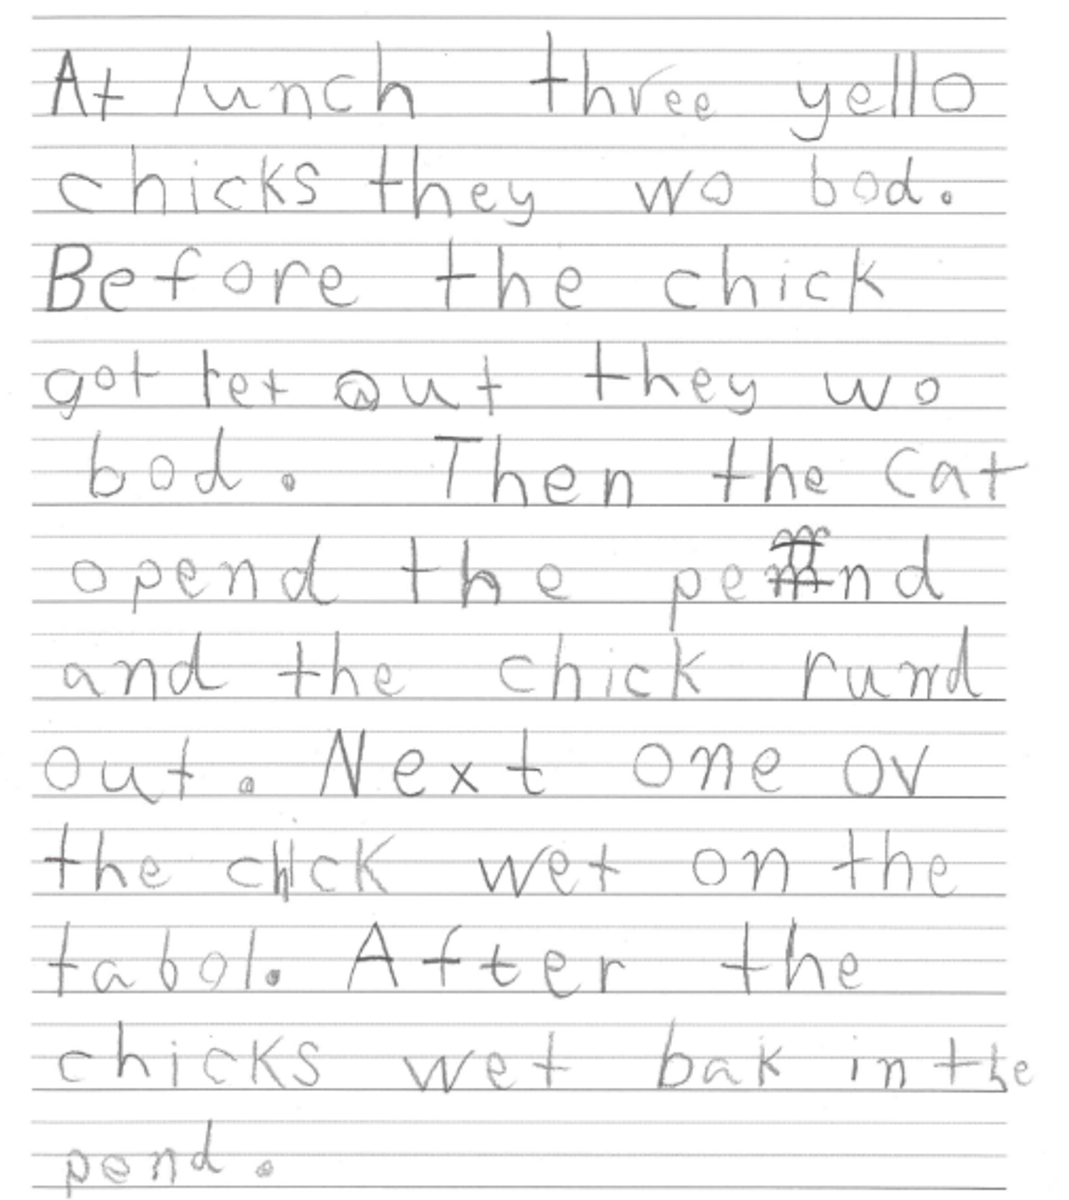 At lunch three yello
chicks they wo bod.
Before the chick
got let out they wo
bod. Then the cat
opend the pend
and the chick rund
out. Next one ov
the chick wet on the
tabol. After the
chicks wet bak in the
pend.